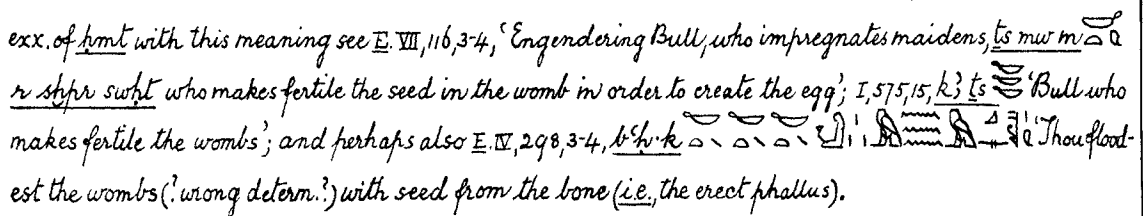 exx. of ḥmt with this meaning see E. VII, 116, 3-4, ‘Engendering Bull, who impregnates maidens, ṯs mw m
r sḫpr swḥt who makes fertile the seed in the womb in order to create the egg’; I, 575, 15, kꜣ ṯs ‘Bull who
makes fertile the wombs’; and perhaps also E. IV, 298, 3-4, bꜥḥ·k ‘Thou flood-
est the wombs (? wrong determ.?) with seed from the bone (i.e., the erect phallus).